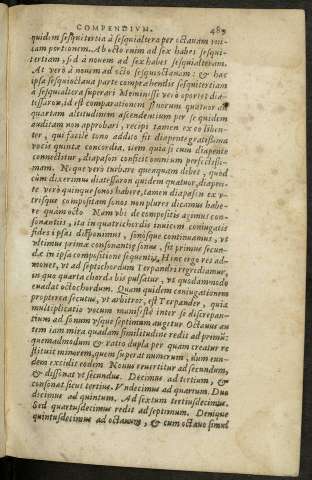 COMPENDIVM. 489
quidem sesquitertia à sesquialtera per octauam toti-
tam portionem. Ab octo enim ad sex habes sesqui-
tertiam, sed à nouem ad sex habes sesquialteram.
At verò à nouem ad octo sesquioctauam: & hac
ipsa sesquioctaua parte comprehendis sesquitertiam
à sesquialtera superari. Meminisse verò oportet dia-
tessaron, id est comparationem sonorum quatuor ad
quartam altitudinem ascendentium per se quidem
auditum non approbari, recipi tamen ex eo liben-
ter, qui facilè tono addito fit diapente gratissima
vocis quintæ concordia. tum quia si cum diapente
connectitur, diapason conficit omnium perfectissi-
mam. Neque verò turbare quequam debet, quod
cum dixerimus diatessaron quidem quatuor, diapen-
te verò quinque sonos habere, tamen diapason ex v-
trisque compositam sonos non plures dicamus habe-
re quàm octo. Nam vbi de compositis agimus con-
sonantiis, ita in quatrichordis inuicem coniugatis
fides ipsas disponimus, sonosque continuamus, vt
vltimus prima consonantiæ sonus, fit primus secun-
da in ipsa compositione sequentis. Hinc ergo res ad-
monet, vt ad septichordum Terpandri regrediamur,
in quo quarta chorda bis pulsatur, vt quodammodo
euadat octochordum. Quam quidem coniugationem
propterea secutus, vt arbitror, est Terpander, quia
multiplicatio vocum manifestè inter se discrepan-
tium ad sonum vsque septimum augetur. Octauus au-
tem iam mira quadam similitudine redit ad primum:
quemadmodum & ratio dupla per quam creatur re-
stituit minorem, quem superat numerum, dum eun-
dem excidit eodem. Nonus reuertitur ad secundum,
& dissonat vt secundus. Decimus ad tertium, &
consonat sicut tertius. Vndecimus ad quartum. Duo
decimus ad quintum. Ad sextum tertiusdecimus.
Sed quartusdecimus redit ad septimum. Denique
quintusdecimus ad octauum, & cum octauo simul